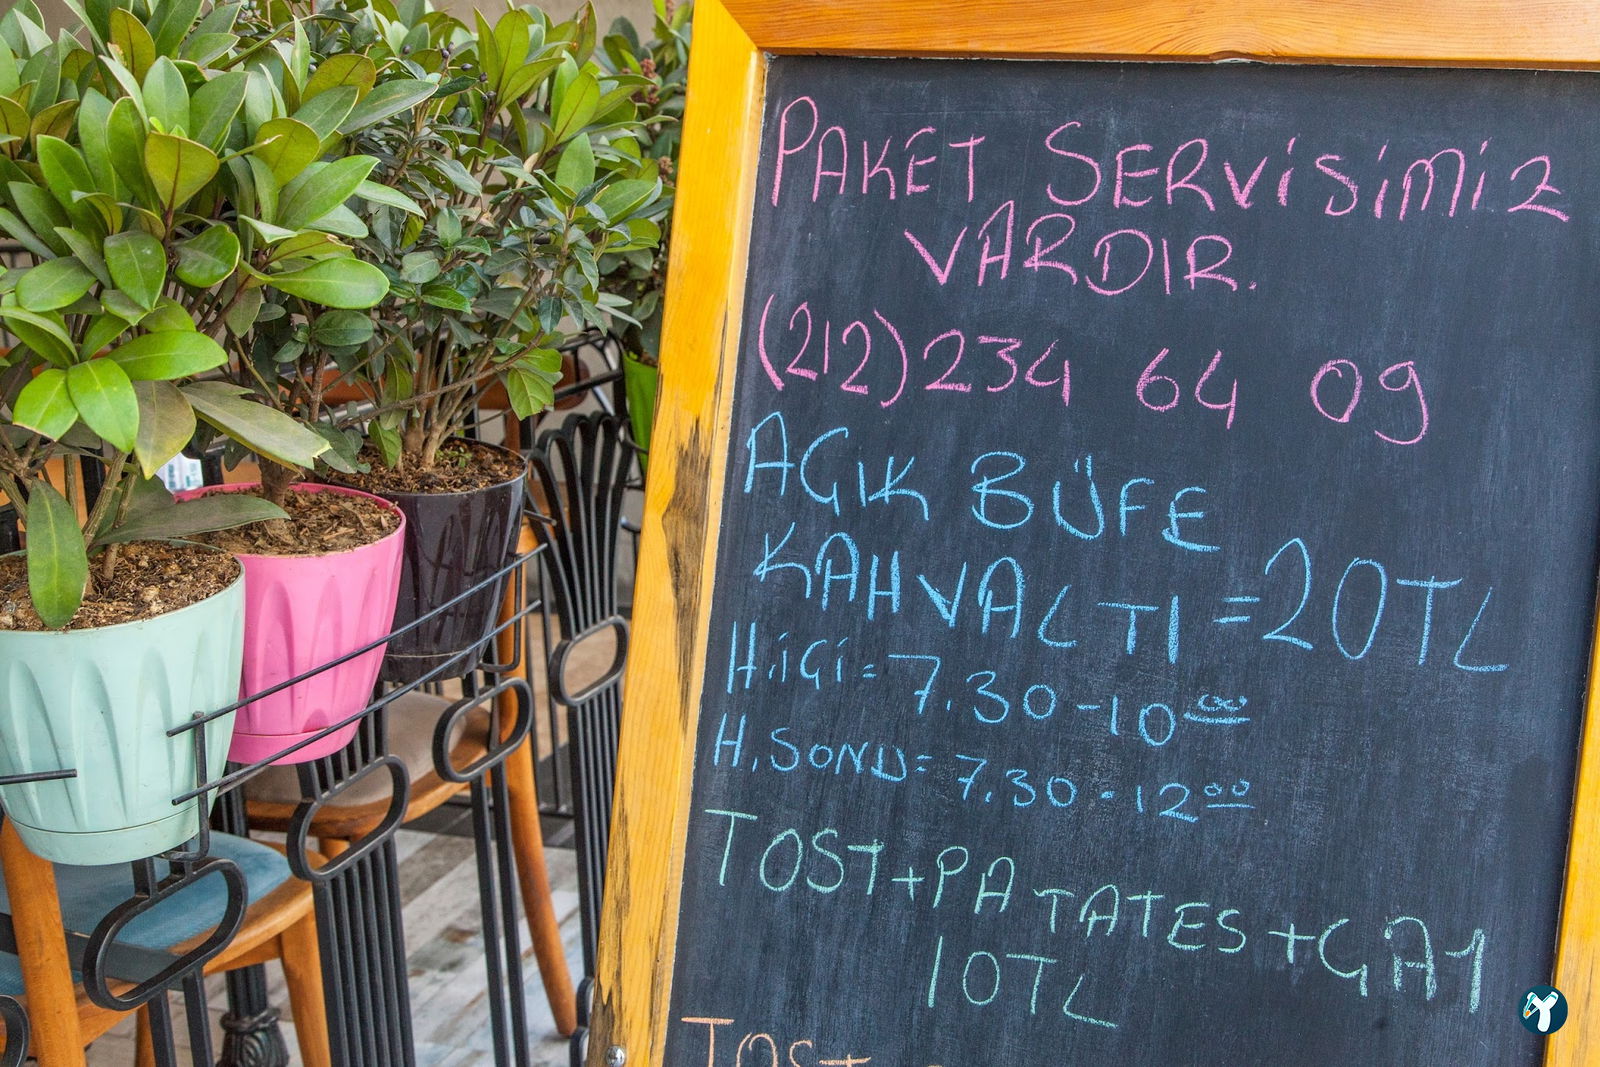 PAKET SERViSiMiZ
VARDIR.
(212) 234 64 09
AÇIK BÜFE
KAHVALTI = 20TL
H.iÇi = 7.30 - 10 00
H. SONU = 7.30 - 12 00
TOST + PATATES + ÇAY
10TL
TOST